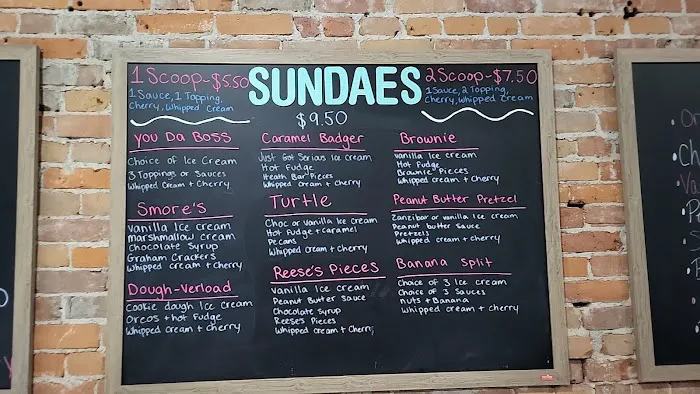 1 Scoop-$5.50
1 Sauce, 1 Topping,
Cherry, Whipped Cream
SUNDAES
$9.50
2 Scoop-$7.50
1 Sauce, 2 Topping,
Cherry, Whipped Cream
You Da Boss
Choice of Ice Cream
3 Toppings or Sauces
Whipped Cream + Cherry
Smore's
Vanilla Ice cream
Marshmallow cream
Chocolate Syrup
Graham Crackers
Whipped cream + cherry
Dough-Verload
Cookie dough Ice Cream
Oreos + hot Fudge
Whipped cream + cherry
Caramel Badger
Just Got Serious Ice cream
Hot Fudge
Heath Bar Pieces
Whipped cream + cherry
Turtle
Choc or Vanilla Ice cream
Hot Fudge + caramel
Pecans
Whipped Cream + cherry
Reese's Pieces
Vanilla Ice cream
Peanut Butter Sauce
Chocolate Syrup
Reese's Pieces
Whipped cream + Cherry
Brownie
Vanilla Ice cream
Hot Fudge
Brownie Pieces
Whipped cream + cherry
Peanut Butter Pretzel
Zanzibar or vanilla Ice cream
Peanut butter Sauce
Pretzels
Whipped cream + cherry
Banana Split
Choice of 3 Ice cream
Choice of 3 Sauces
nuts + Banana
Whipped cream + cherry